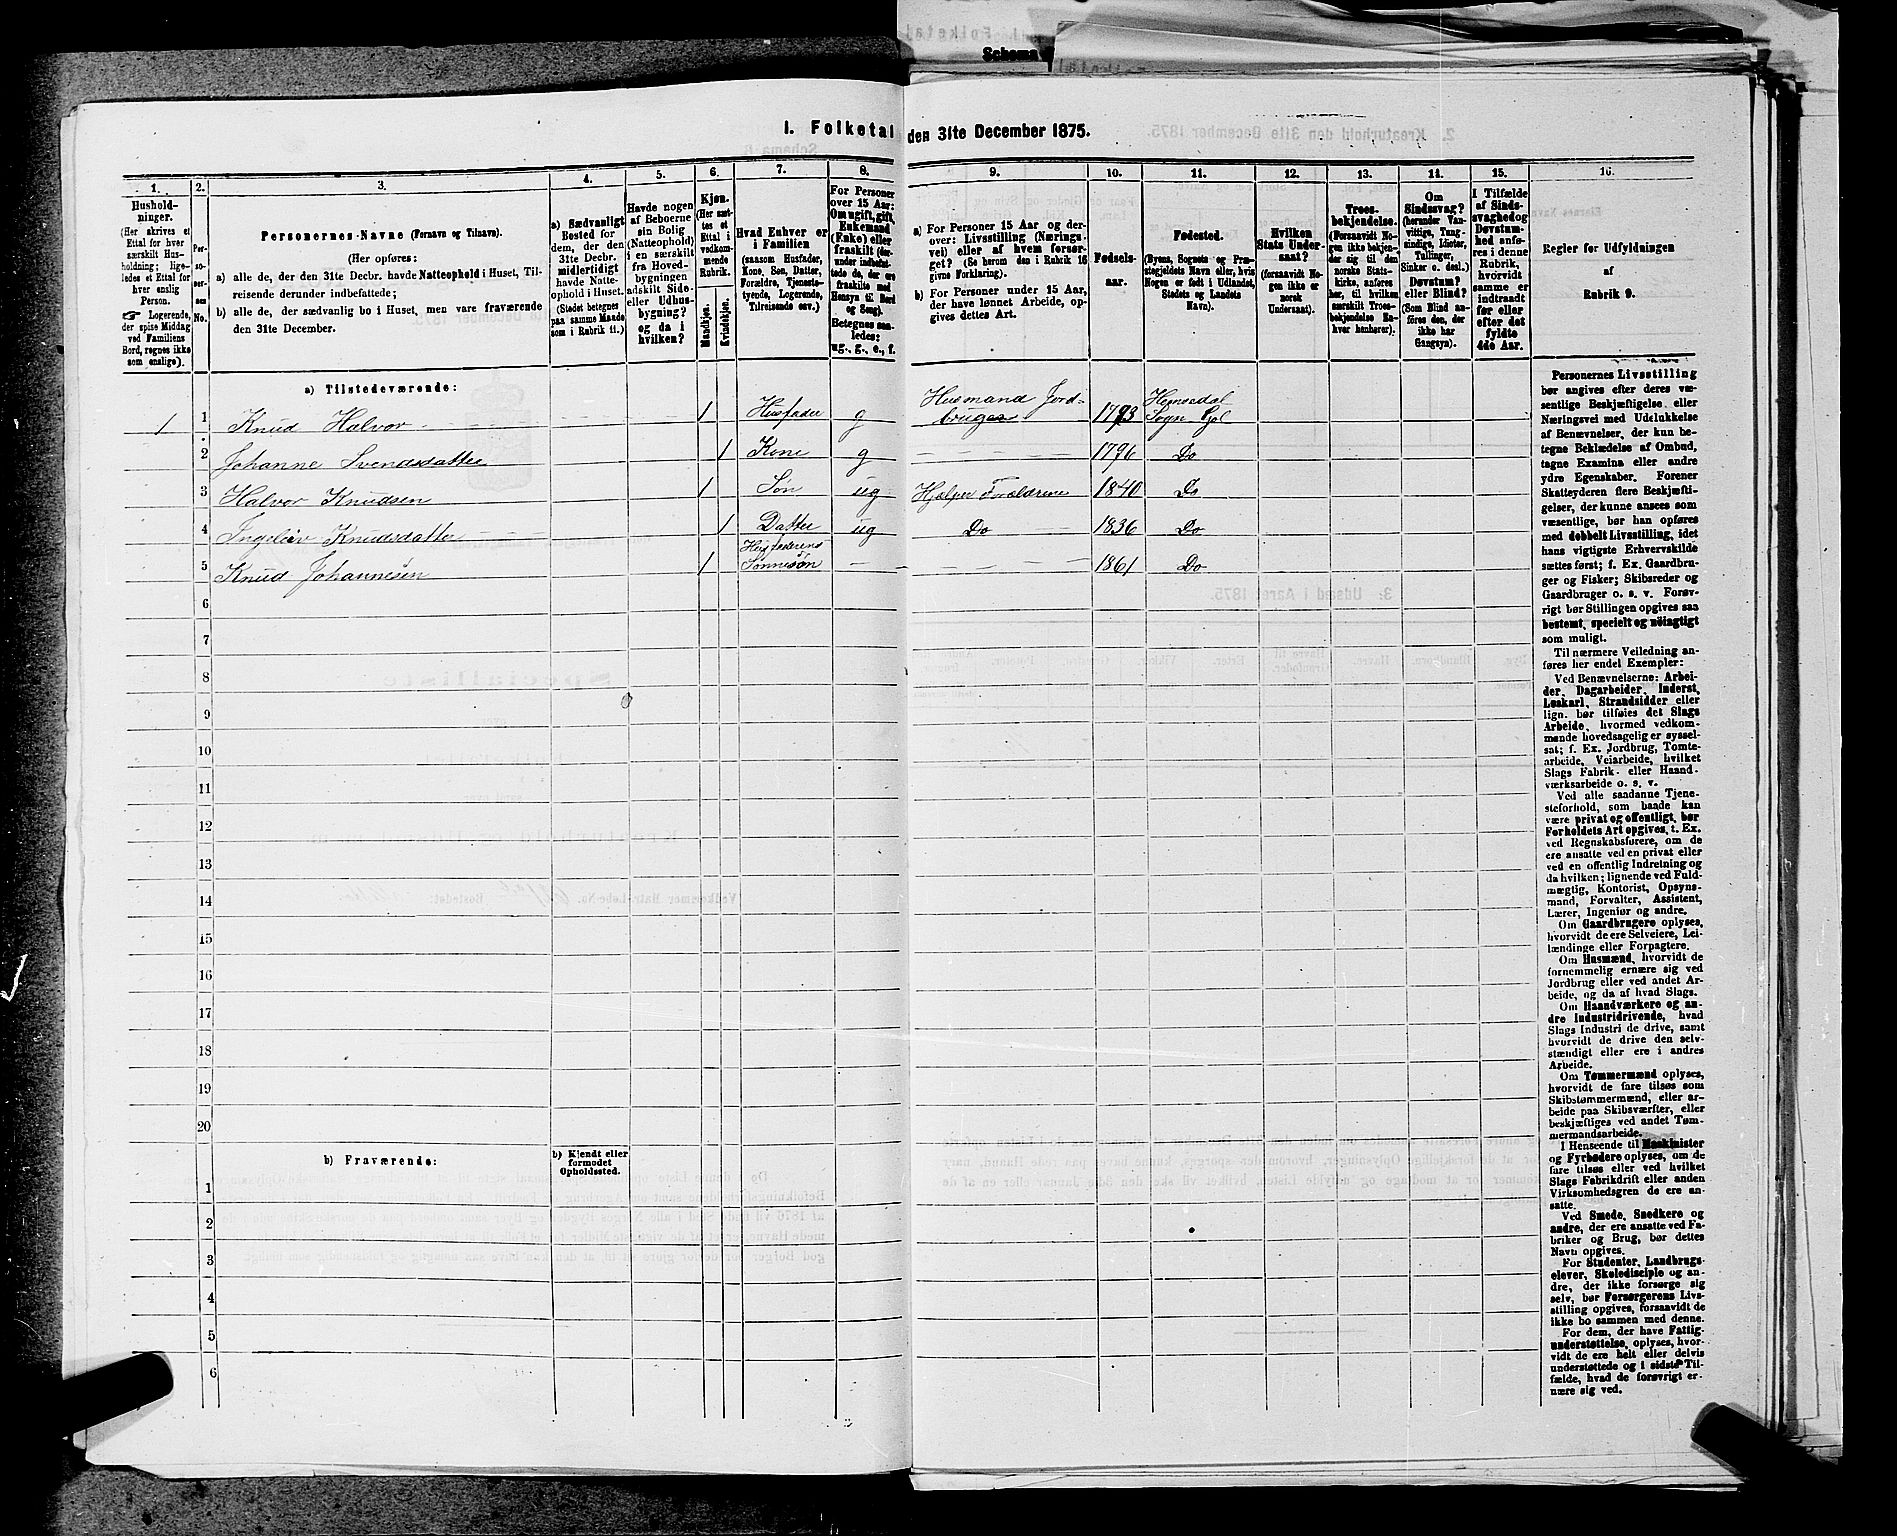 Schema
I. Folketal den 31te December 1875.
1. 2. 3. 4. 5. 6. 7. 8. 9. 10. 11. 12. 13. 14. 15. 16.
Hushold-
ninger.
(Her skrives et
Ettal for hver
særskilt Hus-
holdning; lige-
ledes et Ettal for
hver enslig
Person.
☞ Logerende,
der spise Middag
ved Familiens
Bord, regnes ikke
som enslige).
Per-
so-
ner-
nes
No.
Personernes Navne (Fornavn og Tilnavn).
(Her opføres:
a) alle de, der den 31te Decbr. havde Natteophold i Huset, Til-
reisende derunder indbefattede;
b) alle de, der sædvanlig bo i Huset, men vare fraværende
den 31te December.
a) Sædvanligt
Bosted for
dem, der den
31te Decbr.
midlertidigt
havde Natte-
ophold i Huset.
(Stedet betegnes
paa samme Maade
som i Rubrik 11.)
Havde nogen
af Beboerne
sin Bolig
(Natteophold)
i en særskilt
fra Hoved-
bygningen
adskilt Side-
eller Udhus-
bygning?
og da i
hvilken?
Kjøn.
(Her sæt-
tes et
Ettal i
vedkom-
mende
Rubrik.
Mandkjøn.
Kvindekjøn.
Hvad Enhver er
i Familien
(saasom Husfader,
Kone, Søn, Datter,
Forældre, Tjeneste-
tyende, Logerende,
Tilreisende osv.)
For Personer
over 15 Aar:
Om ugift, gift,
Enkemand
(Enke) eller
fraskilt (der-
under indbefat-
tede de, der ere
fraskilte med
Hensyn til Bord
og Seng).
Betegnes saa-
ledes:
ug., g., e., f.
a) For Personer 15 Aar og der-
over: Livsstilling (Nærings-
vei) eller af hvem forsør-
get? (Se herom den i Rubrik 16
givne Forklaring).
b) For Personer under 15 Aar,
der have lønnet Arbeide, op-
gives dettes Art.
Fødsels-
aar.
Fødested.
(Byens, Sognets og Præ-
stegjeldets Navn eller, hvis
Nogen er født i Udlandet,
Stedets og Landets
Navn).
Hvilken
Stats Under-
saat?
(forsaavidt No-
gen ikke er
norsk
Undersaat).
Troes-
bekjendelse.
(Forsaavidt No-
gen ikke bekjen-
der sig til den
norske Stats-
kirke, anføres
her, til hvilken
særskilt Troes-
bekjendelse En-
hver henhører).
Om
Sindssvag?
(herunder Van-
vittige, Tung-
sindige, Idioter,
Tullinger,
Sinker o. desl.)
Døvstum?
eller Blind?
(Som Blind an-
føres den, der
ikke har
Gangsyn).
I Tilfælde
af Sinds-
svaghed og
Døvstum-
hed anfø-
res i denne
Rubrik,
hvorvidt
samme er
indtraadt
før eller
efter det
fyldte
4de Aar.
Regler for Udfyldningen
af
Rubrik 9.
a) Tilstedeværende:
1 1 Knud Halvor 1 Husfader g Husmand Jord-
bruger 1793 Hemsedal
Sogn Gol
2 Johanne Svendsdatter 1 Kone g 1796 Do
3 Halvor Knudsen 1 Søn ug Hjælper Forældrene 1840 Do
4 Ingeleiv Knudsdatter 1 Datter ug Do 1836 Do
5 Knud Johannesen 1 Husfaderens
Sønnesøn 1861 Do
6
7
8
9
10
11
12
13
14
15
16
17
18
19
20
b) Fraværende:
b) Kjendt eller
formodet
Opholdssted.
1
2
3
4
5
6
Personernes Livsstilling
bør angives efter deres væ-
sentlige Beskjæftigelse eller
Næringsvei med Udelukkelse
af Benævnelser, der kun be-
tegne Beklædelse af Ombud,
tagne Examina eller andre
ydre Egenskaber. Forener
Skatteyderen flere Beskjæfti-
gelser, der kunne ansees som
væsentlige, bør han opføres
med dobbelt Livsstilling, idet
hans vigtigste Erhvervskilde
sættes først; f. Ex. Gaardbru-
ger og Fisker; Skibsreder og
Gaardbruger o. s. v. Forøv-
rigt bør Stillingen opgives saa
bestemt, specielt og nøiagtigt
som muligt.
Til nærmere Veiledning an-
føres her endel Exempler:
Ved Benævnelserne: Arbei-
der, Dagarbeider, Inderst,
Løskarl, Strandsidder eller
lign. bør tilføies det Slags
Arbeide, hvormed vedkom-
mende hovedsagelig er syssel-
sat; f. Ex. Jordbrug, Tomte-
arbeide, Veiarbeide, hvilket
Slags Fabrik- eller Haand-
værksarbeide o. s. v.
Ved alle saadanne Tjene-
steforhold, som baade kan
være privat og offentligt, bør
Forholdets Art opgives, t. Ex.
ved Regnskabsførere, om de
ere ansatte ved en privat eller
ved en offentlig Indretning og
da hvilken; lignende ved Fuld-
mægtig, Kontorist, Opsyns-
mand, Forvalter, Assistent,
Lærer, Ingeniør og andre.
Om Gaardbrugere oplyses,
hvorvidt de ere Selveiere, Lei-
lændinge eller Forpagtere.
Om Husmænd, hvorvidt de
fornemmelig ernære sig ved
Jordbrug eller ved andet Ar-
beide, og da af hvad Slags.
Om Haandværkere og an-
dre Industridrivende, hvad
Slags Industri de drive, samt
hvorvidt de drive den selv-
stændigt eller ere i andres
Arbeide.
Om Tømmermænd oplyses,
hvorvidt de fare tilsøs som
Skibstømmermænd, eller ar-
beide paa Skibsværfter, eller
beskjæftiges ved andet Tøm-
mermandsarbeide.
I Henseende til Maskinister
og Fyrbødere oplyses, om de
fare tilsøs eller ved hvilket
Slags Fabrikdrift eller anden
Virksomhedsgren de ere an-
satte.
Ved Smede, Snedkere og
andre, der ere ansatte ved Fa-
briker og Brug, bør dettes
Navn opgives.
For Studenter, Landbrugs-
elever, Skoledisciple og an-
dre, der ikke forsørge sig
selv, bør Forsørgerens Livs-
stilling opgives, forsaavidt de
ikke bo sammen med denne.
For dem, der have Fattig-
understøttelse, oplyses, hvor-
vidt de ere helt eller delvis
understøttede og i sidste Til-
fælde, hvad de forøvrigt er-
nære sig ved.